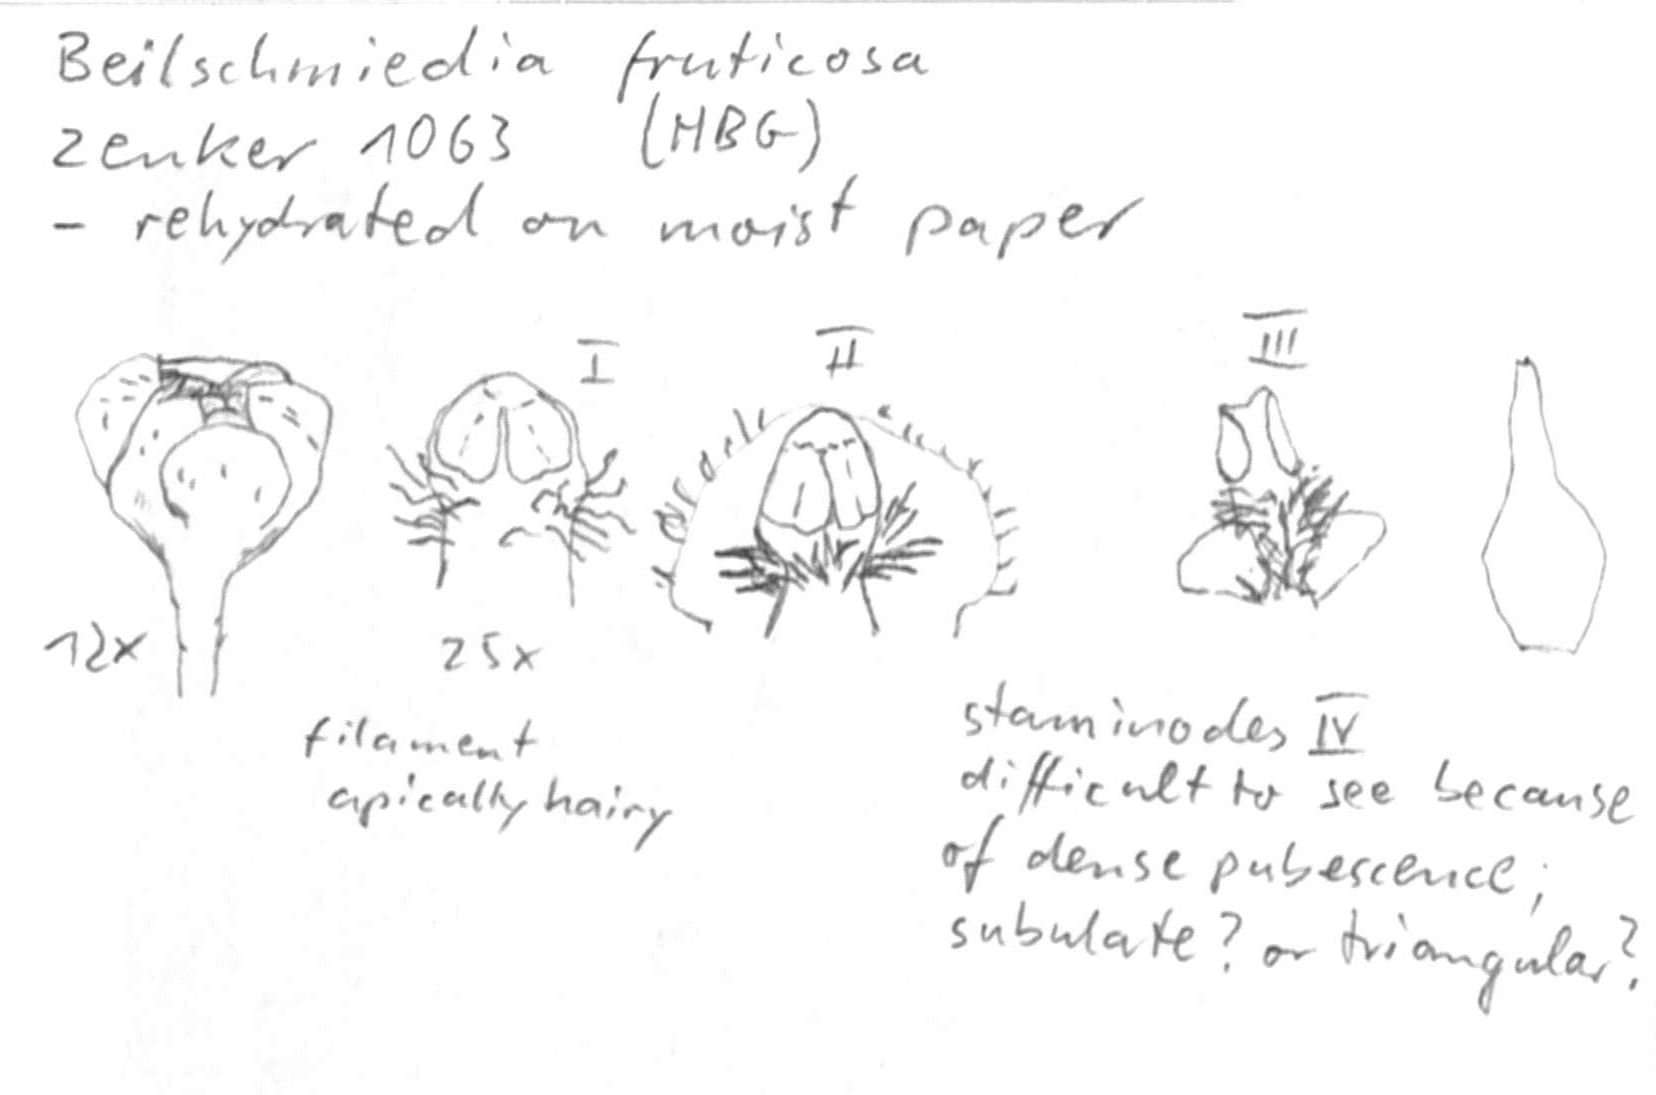 Beilschmiedia fruticosa
Zenker 1063 (HBG)
- rehydrated on moist paper
I
II
III
12x
25x
filament
apically hairy
staminodes IV
difficult to see because
of dense pubescence;
subulate? or triangular?